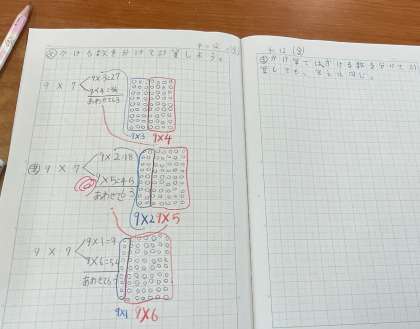 4-12 (8)
め かける数を分けて計算しよう。
9 × 7
9×3=27
9×4=36
あわせて63
9×3 9×4
9 × 7
9×2=18
9×5=45
あわせて63
9×2 9×5
9 × 7
9×1=9
9×6=54
あわせて63
9×1 9×6
4-12 (8)
かけ算ではかける数を分けて計
算しても、答えは同じ。